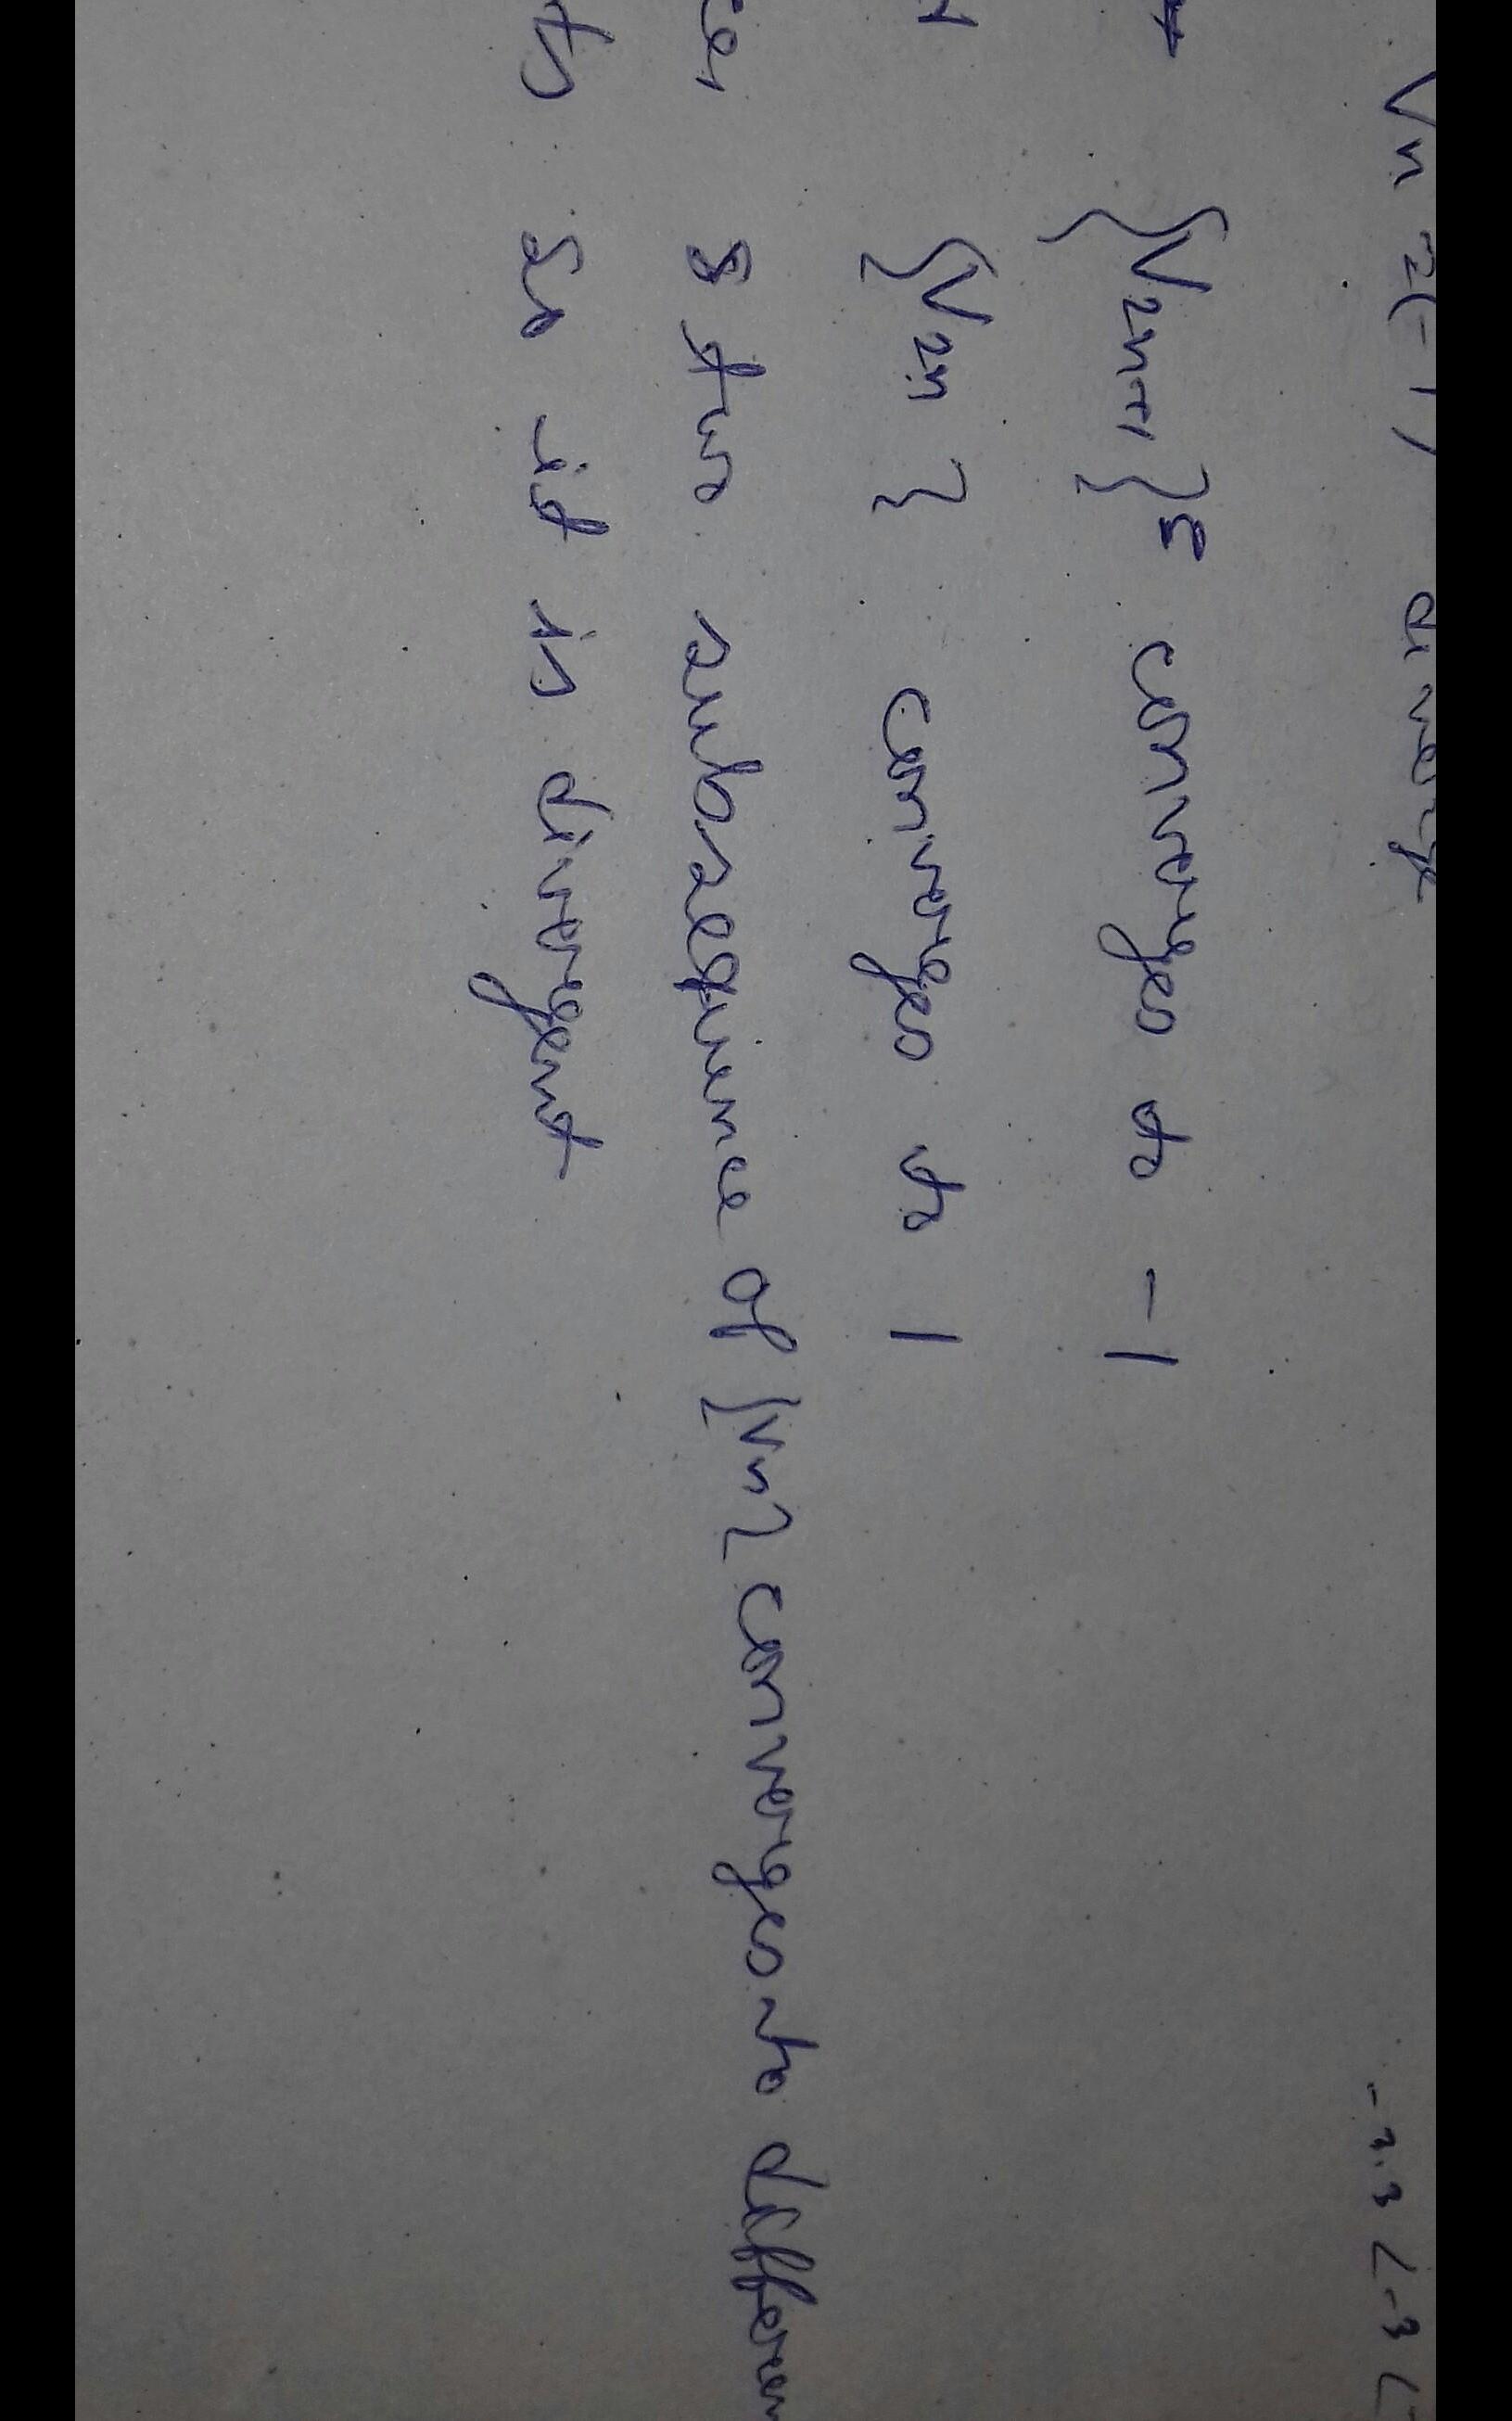 Vn = (-1) diverge
-3.3 < -3 <
{V2n+1} = converges to -1
{V2n} converges to 1
two subsequence of {Vn} converges to differen
ts So it is divergent